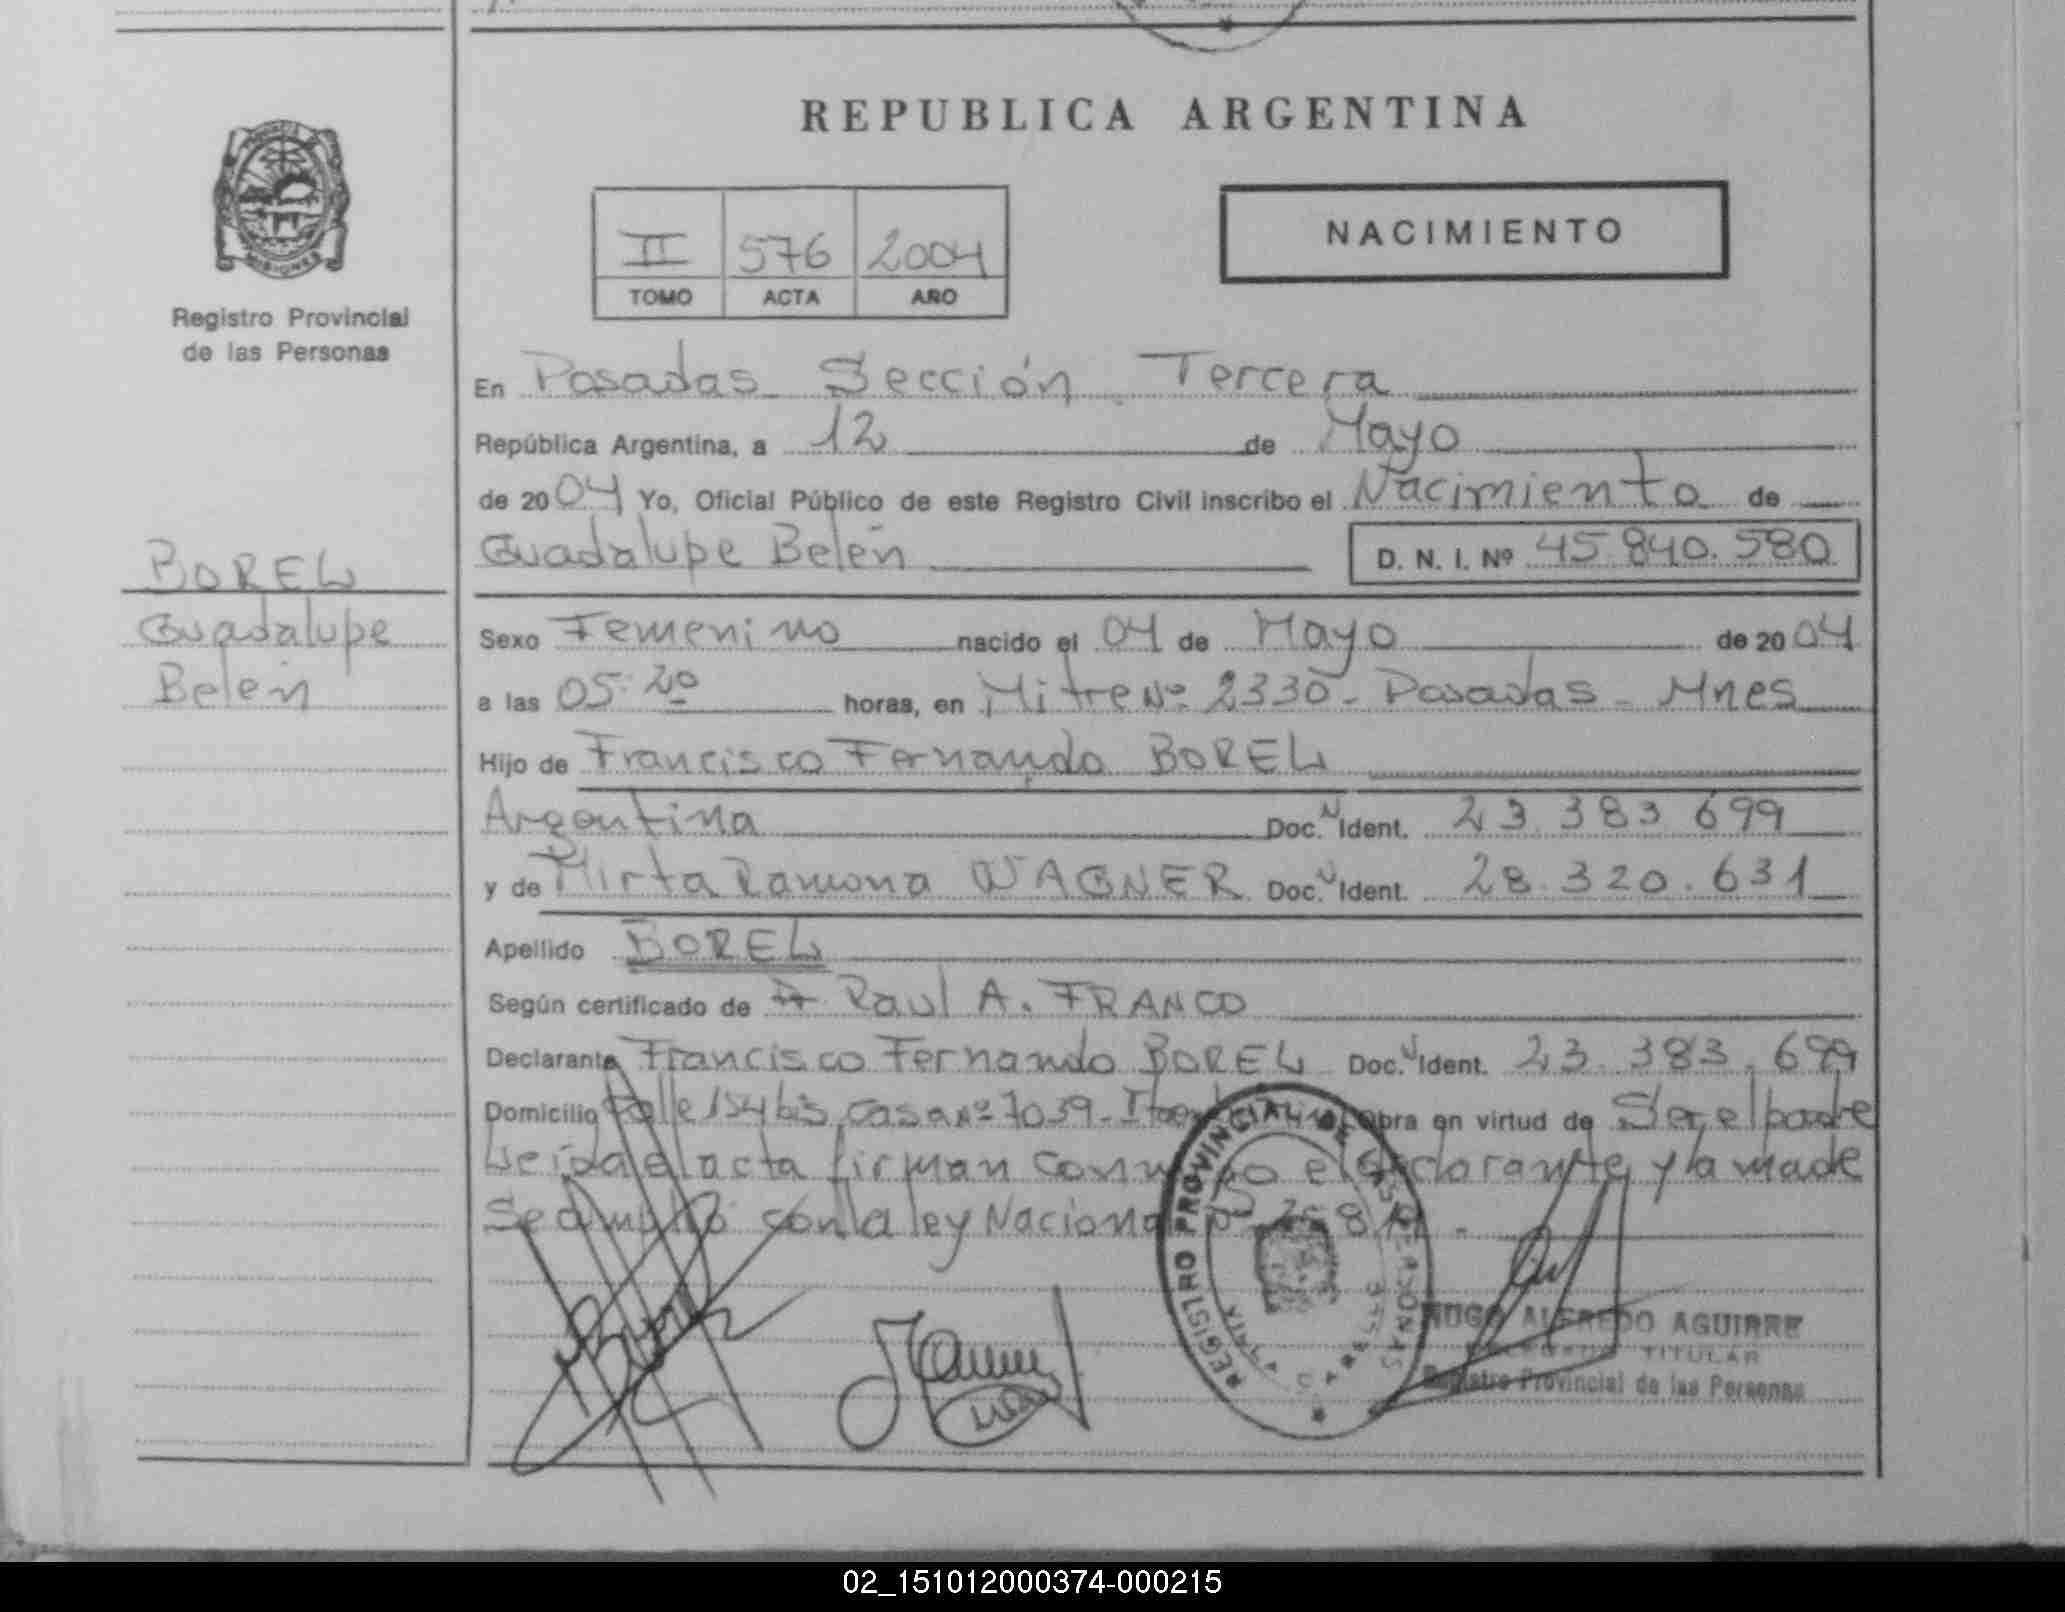 REPUBLICA ARGENTINA
NACIMIENTO
II 576 2004
TOMO ACTA AÑO
MISIONES
Registro Provincial
de las Personas
En Posadas Sección Tercera
República Argentina, a 12 de Mayo
de 2004 Yo, Oficial Público de este Registro Civil inscribo el Nacimiento de
Guadalupe Belén D. N. I. Nº 45.840.580
BOREL
Guadalupe
Belén
Sexo Femenino nacido el 04 de Mayo de 2004
a las 05:20 horas, en Mitre Nº 2330 - Posadas - Mnes
Hijo de Francisco Fernando BOREL
Argentina Doc. N Ident. 23.383.699
y de Mirta Ramona WAGNER Doc. Ident. 28.320.631
Apellido BOREL
Según certificado de Raul A. FRANCO
Declarante Francisco Fernando BOREL Doc. Ident. 23.383.699
Domicilio Calle 154 bis casa Nº 7039 - obra en virtud de Ser el padre
Leida el acta firman conmigo el declarante y la madre
Se con la ley Nacional
REGISTRO PROVINCIAL DE LAS PERSONAS
HUGO ALFREDO AGUIRRE
TITULAR
Registro Provincial de las Personas
02_151012000374-000215